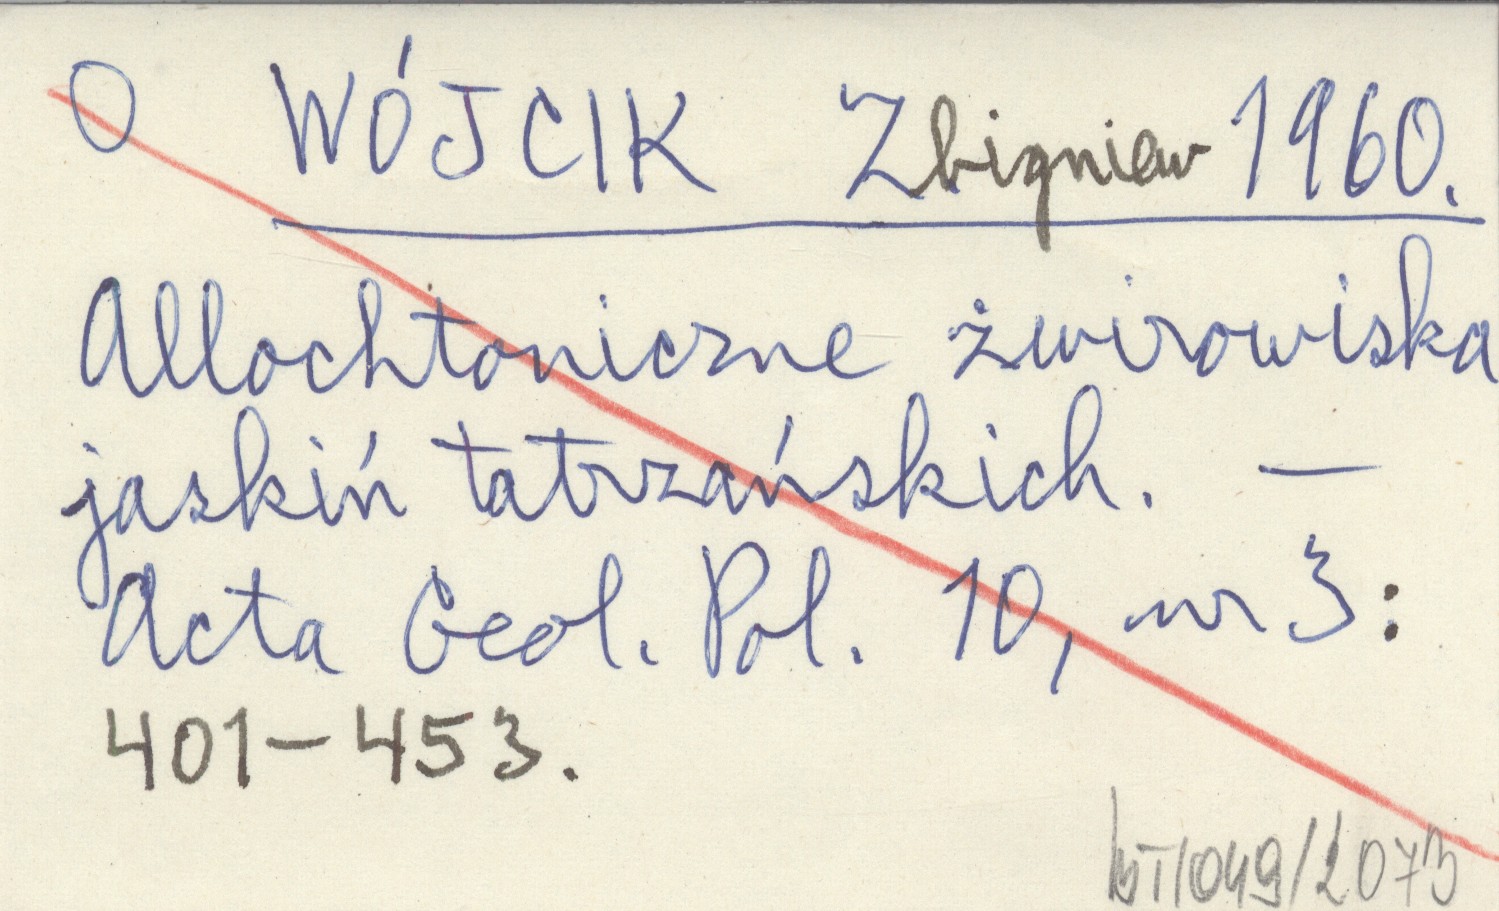 O WÓJCIK Zbigniew 1960.
Allochtoniczne żwirowiska
jaskiń tatrzańskich. —
Acta Geol. Pol. 10, nr 3:
401-453.